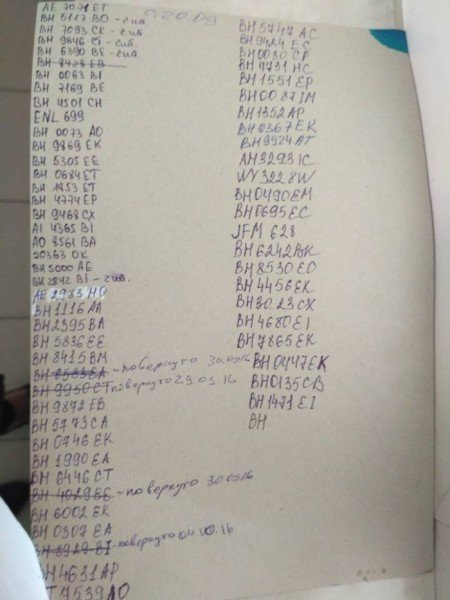 AE 7071 ET
BH 5117 BO - сив.
BH 7093 CK - сив.
BH 9646 CT - сив.
BH 6390 BE - сив.
BH 8428 EB
BH 0063 BI
BH 7169 BE
BH 4501 CH
ENL 699
BH 0073 AO
BH 9869 EK
BH 5305 EE
BH 0684 ET
BH 1453 ET
BH 4774 EP
BH 9468 CX
AI 4365 BI
AO 8561 BA
20363 OK
BH 5000 AE
BH 2842 BI
AE 2983 HO
BH 1116 AA
BH 2395 BA
BH 5836 EE
BH 8415 BM
BH 8585 EA - повернуто 30.09.16
BH 9950 CT повернуто 29.09.16
BH 9872 EB
BH 5773 CA
BH 0746 EK
BH 1990 EA
BH 6446 CT
BH 4029 EE - повернуто 30.09.16
BH 6002 EK
BH 0307 EA
BH 8929 BI - повернуто 04.10.16
BH 4631 AP
7539 AO
с 20.09
BH 5747 AC
BH 9414 EC
BH 0030 CP
BH 4731 HC
BH 1551 EP
BH 0087 IM
BH 1352 AP
BH 0367 EK
BH 9924 AT
AH 3293 IC
WY 3228W
BH 0490 EM
BH 0695 EC
JFM 628
BH 6242 BK
BH 8530 EO
BH 4456 EK
BH 3023 CX
BH 4680 EI
BH 7865 EK
BH 0447 EK
BH 0135 CB
BH 1471 EI
BH